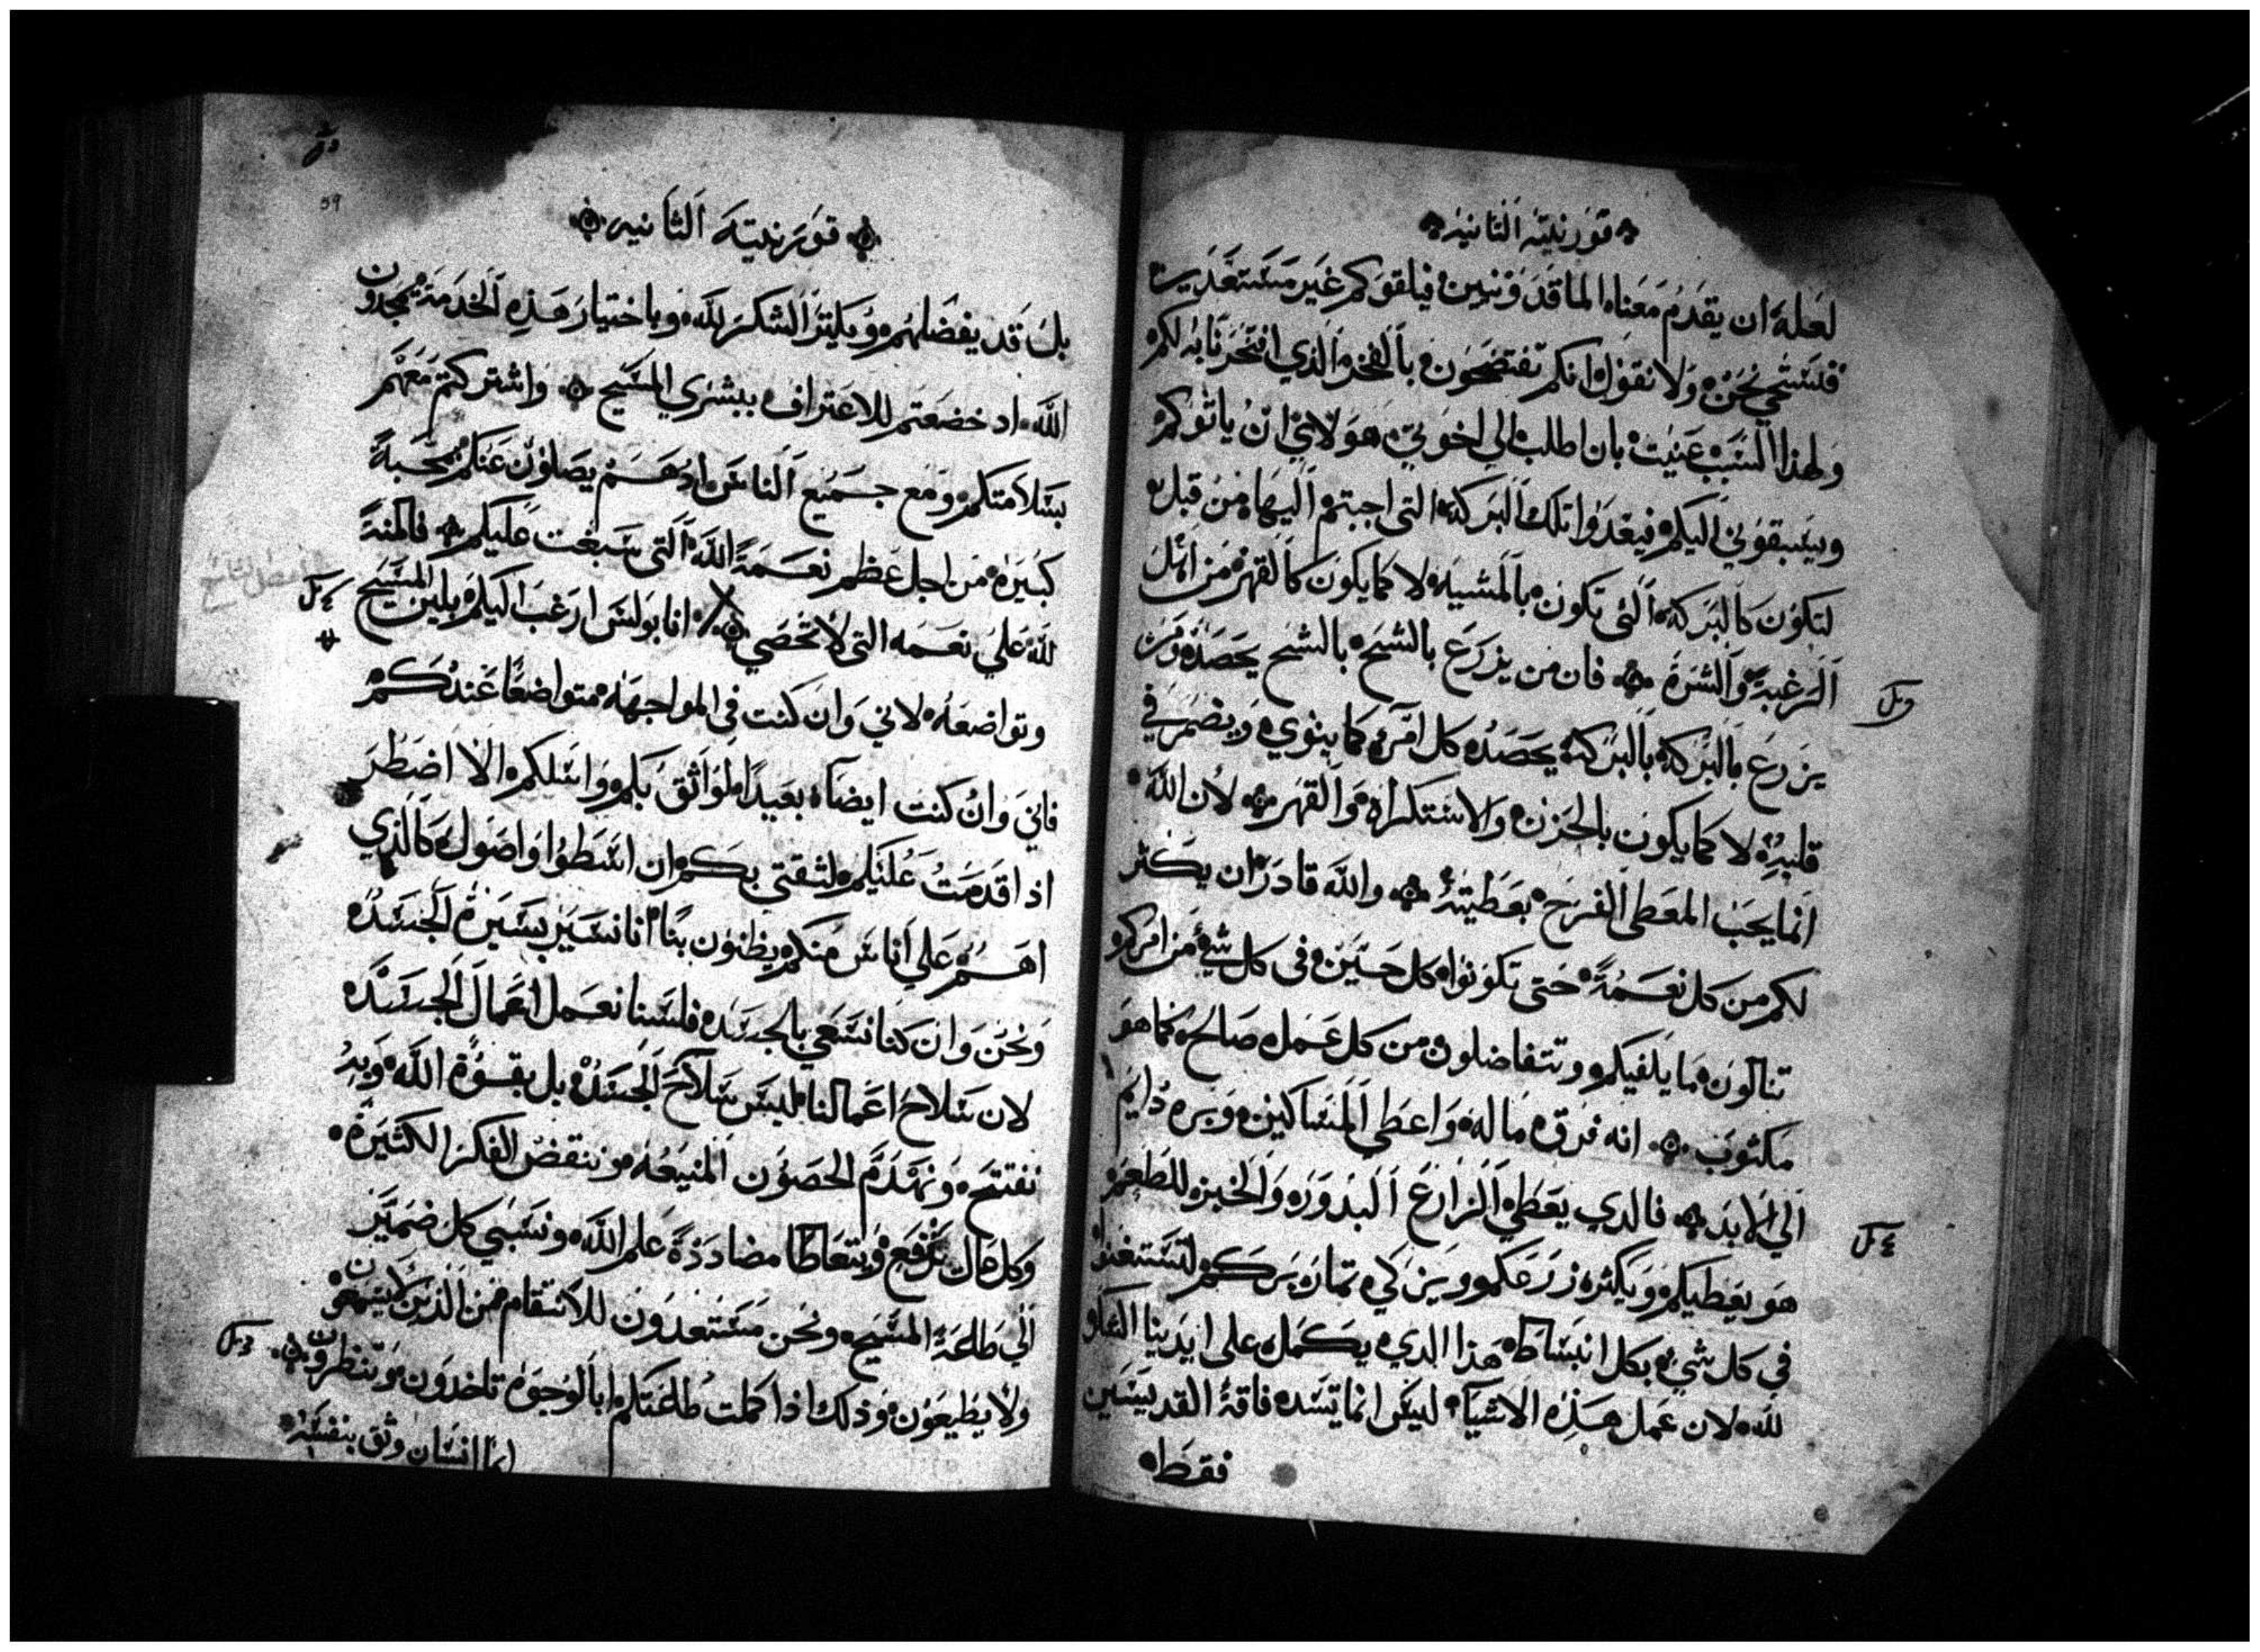 قورنيته الثانيه
لعله ان يقدم معناه الماقدونيين فيلقوكم غير مستعدين
فنستحي نحن ولا نقول انكم تفتضحون بالفخر الذي افتخرنا به لكم
ولهذا السبب عنيت بان اطلب الي اخوتي هولاي ان ياتوكم
ويسبقوني اليكم فيعدوا تلك البركه التي اجبتم اليها من قبل
لتكون كالبركه التي تكون بالمشييه لا كما يكون كالقهر من اهل
الرغبة والشرة فان من يزرع بالشح بالشح يحصد ومن
يزرع بالبركة بالبركة يحصد كل امرء كما ينوي ويضمر في
قلبه لا كما يكون بالحزن والاستكراه والقهر لان الله
انما يحب المعطي الفرح بعطيته والله قادر ان يكثر
لكم من كل نعمة حتي تكونوا كل حين في كل شي من امركم
تنالون ما يكفيكم وتتفاضلون من كل عمل صالح كما هو
مكتوب انه فرق ماله واعطي المساكين وبره دايم
الي الابد فالدي يعطي الزارع البدور والخبز للطعم
هو يعطيكم ويكثر زرعكم ويزكي تمار بركم لتستغنوا
في كل شي بكل انبساط هذا الدي يكمل علي ايدينا الشكر
لله لان عمل هذه الاشيا ليس انما تسد فاقة القديسين
فقط
59
قورنيتة الثانيه
بل قد يفضلهم ويكثر الشكر لله وباختيار هذه الخدمة يمجدون
الله اد خضعتم للاعتراف ببشري المسيح واشتركتم معهم
بسلامتكم ومع جميع الناس ادهم يصلون عنكم بمحبة
كبيرة من اجل عظم نعمة الله التي سبغت عليكم فالمنة
لله علي نعمه التي لا تحصي انا بولس ارغب اليكم بلين المسيح
وتواضعه لاني وان كنت في المواجهه متواضعا عندكم
فاني وان كنت ايضا بعيدا لواثق بكم واسلكم الا اضطر
اذا قدمت عليكم لثقتي بكم ان اسطوا واصول كالذي
اهم علي اناس منكم يظنون بنا انا نسير بسيرة الجسد
ونحن وان كنا نسعي بالجسد فلسنا نعمل اعمال الجسد
لان سلاح اعمالنا ليس سلاح الجسد بل بقوة الله وبه
نفتتح ونهدم الحصون المنيعه وننقض الفكر الكثيرة
وكل عال يرتفع ويتعاطا مضاددة علم الله ونسبي كل ضمير
الي طاعة المسيح ونحن مستعدون للانتقام من الذين لا يسمعون
ولا يطيعون وذلك اذا كملت طاعتكم ابالوجوه تاخدون وتنظرون
ايما انسان وثق بنفسه